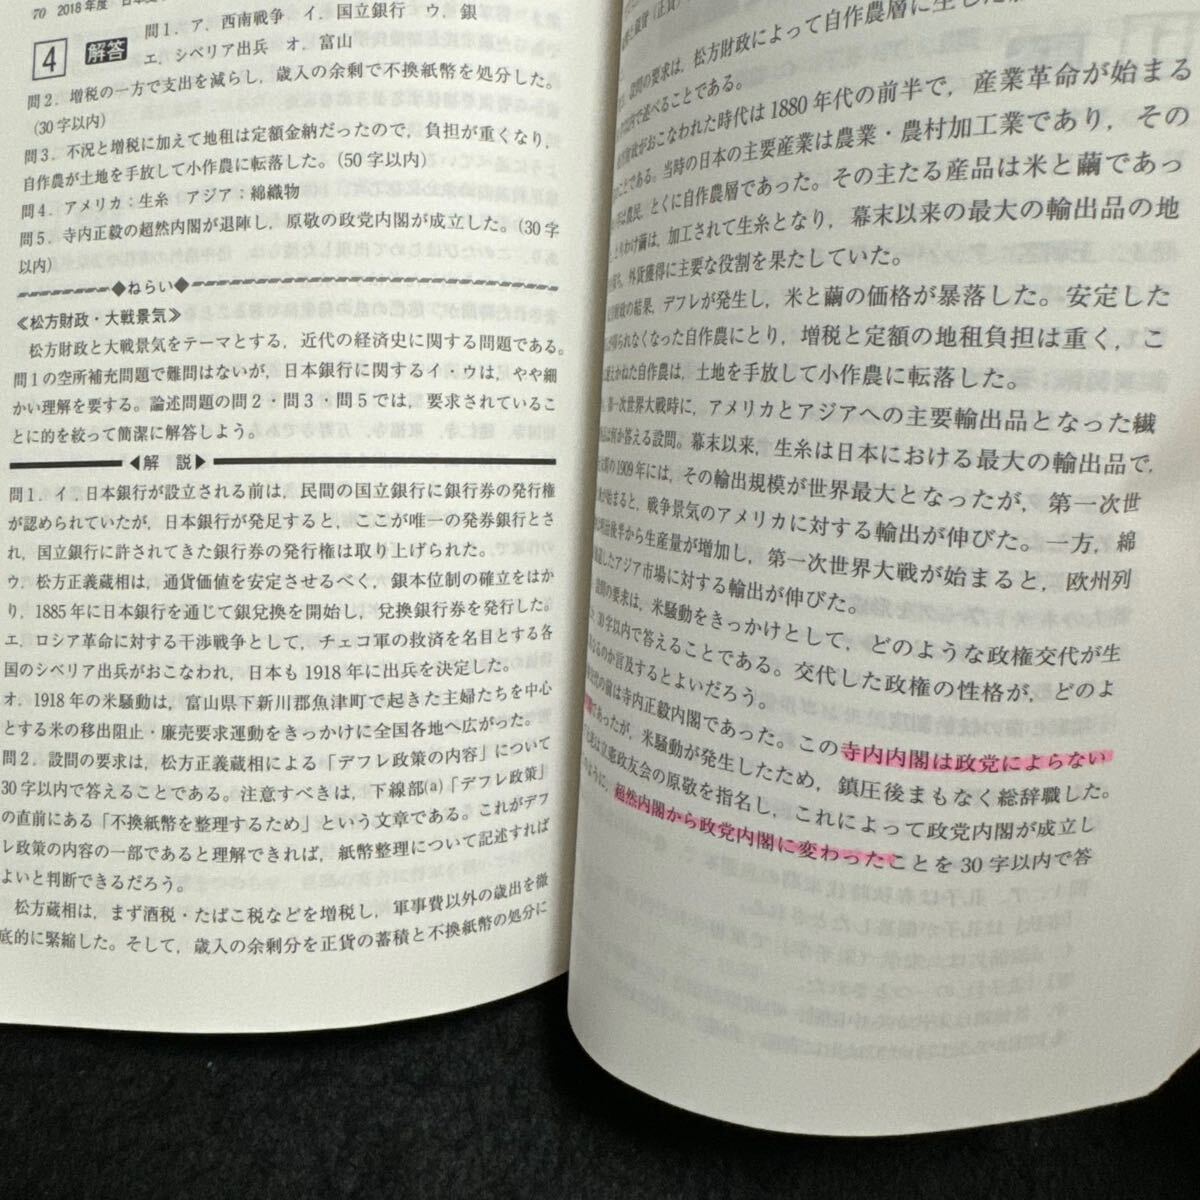 70 2018年度 日本史
4 解答
問1．ア．西南戦争 イ．国立銀行 ウ．銀
エ．シベリア出兵 オ．富山
問2．増税の一方で支出を減らし，歳入の余剰で不換紙幣を処分した。
(30字以内)
問3．不況と増税に加えて地租は定額金納だったので，負担が重くなり，
自作農が土地を手放して小作農に転落した。(50字以内)
問4．アメリカ：生糸 アジア：綿織物
問5．寺内正毅の超然内閣が退陣し，原敬の政党内閣が成立した。(30字
以内)
◆ねらい◆
≪松方財政・大戦景気≫
松方財政と大戦景気をテーマとする，近代の経済史に関する問題である。
問1の空所補充問題で難問はないが，日本銀行に関するイ・ウは，やや細
かい理解を要する。論述問題の問2・問3・問5では，要求されているこ
とに的を絞って簡潔に解答しよう。
◀解 説▶
問1．イ．日本銀行が設立される前は，民間の国立銀行に銀行券の発行権
が認められていたが，日本銀行が発足すると，ここが唯一の発券銀行とさ
れ，国立銀行に許されてきた銀行券の発行権は取り上げられた。
ウ．松方正義蔵相は，通貨価値を安定させるべく，銀本位制の確立をはか
り，1885年に日本銀行を通じて銀兌換を開始し，兌換銀行券を発行した。
エ．ロシア革命に対する干渉戦争として，チェコ軍の救済を名目とする各
国のシベリア出兵がおこなわれ，日本も1918年に出兵を決定した。
オ．1918年の米騒動は，富山県下新川郡魚津町で起きた主婦たちを中心
とする米の移出阻止・廉売要求運動をきっかけに全国各地へ広がった。
問2．設問の要求は，松方正義蔵相による「デフレ政策の内容」について
30字以内で答えることである。注意すべきは，下線部(a)「デフレ政策」
の直前にある「不換紙幣を整理するため」という文章である。これがデフ
レ政策の内容の一部であると理解できれば，紙幣整理について記述すれば
よいと判断できるだろう。
松方蔵相は，まず酒税・たばこ税などを増税し，軍事費以外の歳出を徹
底的に緊縮した。そして，歳入の余剰分を正貨の蓄積と不換紙幣の処分に
の要求は，松方財政によって自作農層に生じた
内で述べることである。
がおこなわれた時代は1880年代の前半で，産業革命が始まる
ことである。当時の日本の主要産業は農業・農村加工業であり，その
は農民，とくに自作農層であった。その主たる産品は米と繭であっ
とりわけ繭は，加工されて生糸となり，幕末以来の最大の輸出品の地
，外貨獲得に主要な役割を果たしていた。
の結果，デフレが発生し，米と繭の価格が暴落した。安定した
られなくなった自作農にとり，増税と定額の地租負担は重く，こ
えかねた自作農は，土地を手放して小作農に転落した。
第一次世界大戦時に，アメリカとアジアへの主要輸出品となった繊
答える設問。幕末以来，生糸は日本における最大の輸出品で，
の1909年には，その輸出規模が世界最大となったが，第一次世
が始まると，戦争景気のアメリカに対する輸出が伸びた。一方，綿
後半から生産量が増加し，第一次世界大戦が始まると，欧州列
したアジア市場に対する輸出が伸びた。
設問の要求は，米騒動をきっかけとして，どのような政権交代が生
，30字以内で答えることである。交代した政権の性格が，どのよ
なるのか言及するとよいだろう。
の前は寺内正毅内閣であった。この寺内内閣は政党によらない
であったが，米騒動が発生したため，鎮圧後まもなく総辞職した。
は立憲政友会の原敬を指名し，これによって政党内閣が成立し
のように，超然内閣から政党内閣に変わったことを30字以内で答